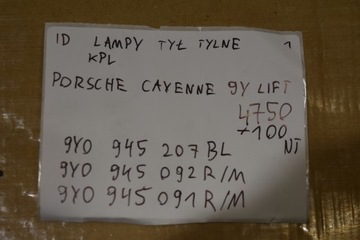 ID LAMPY TYŁ TYLNE 1
KPL
PORSCHE CAYENNE 9Y LIFT
4750
+100
NT
9Y0 945 207 BL
9Y0 945 092 R/M
9Y0 945 091 R/M